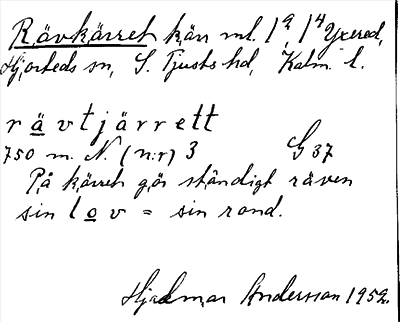 Rävkärret kärr ml. 1⁹ 1⁴ Yxered,
Hjorteds sn, S. Tjusts hd, Kalm. l.
rävtjärrett
750 m. N. (n:r) 3 G 37
På kärret gör ständigt räven
sin lov = sin rond.
Hjalmar Andersson 1952.